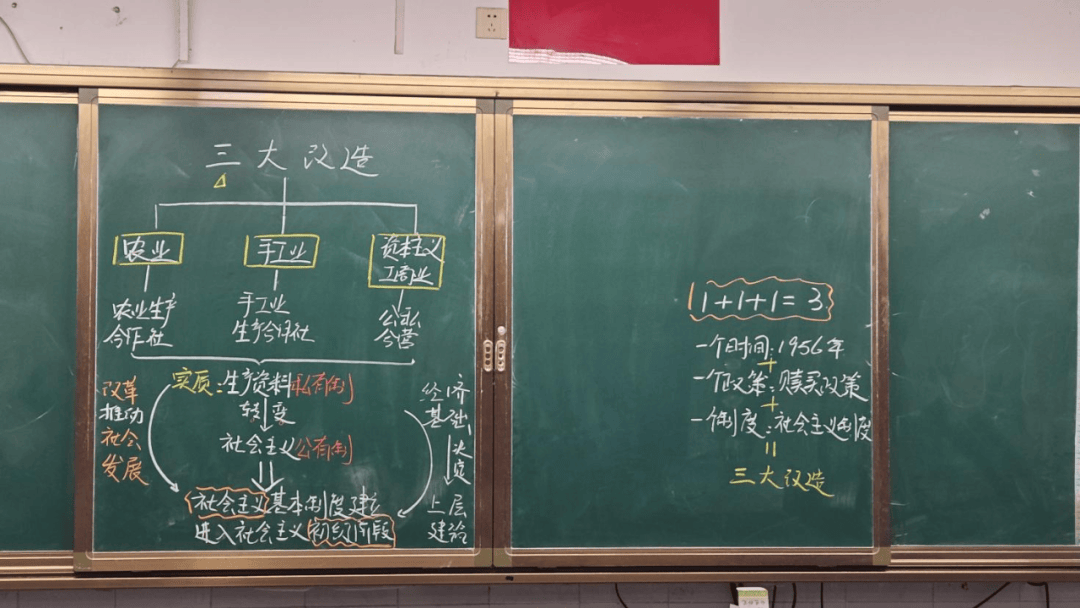 三大改造
农业
手工业
资本主义
工商业
农业生产
合作社
手工业
生产合作社
公私
合营
实质:生产资料私有制
转变
社会主义公有制
社会主义基本制度建立
进入社会主义初级阶段
改革
推动
社会
发展
经济
基础
决定
上层
建筑
1+1+1=3
一个时间:1956年
+
一个政策:赎买政策
+
一个制度:社会主义制度
=
三大改造